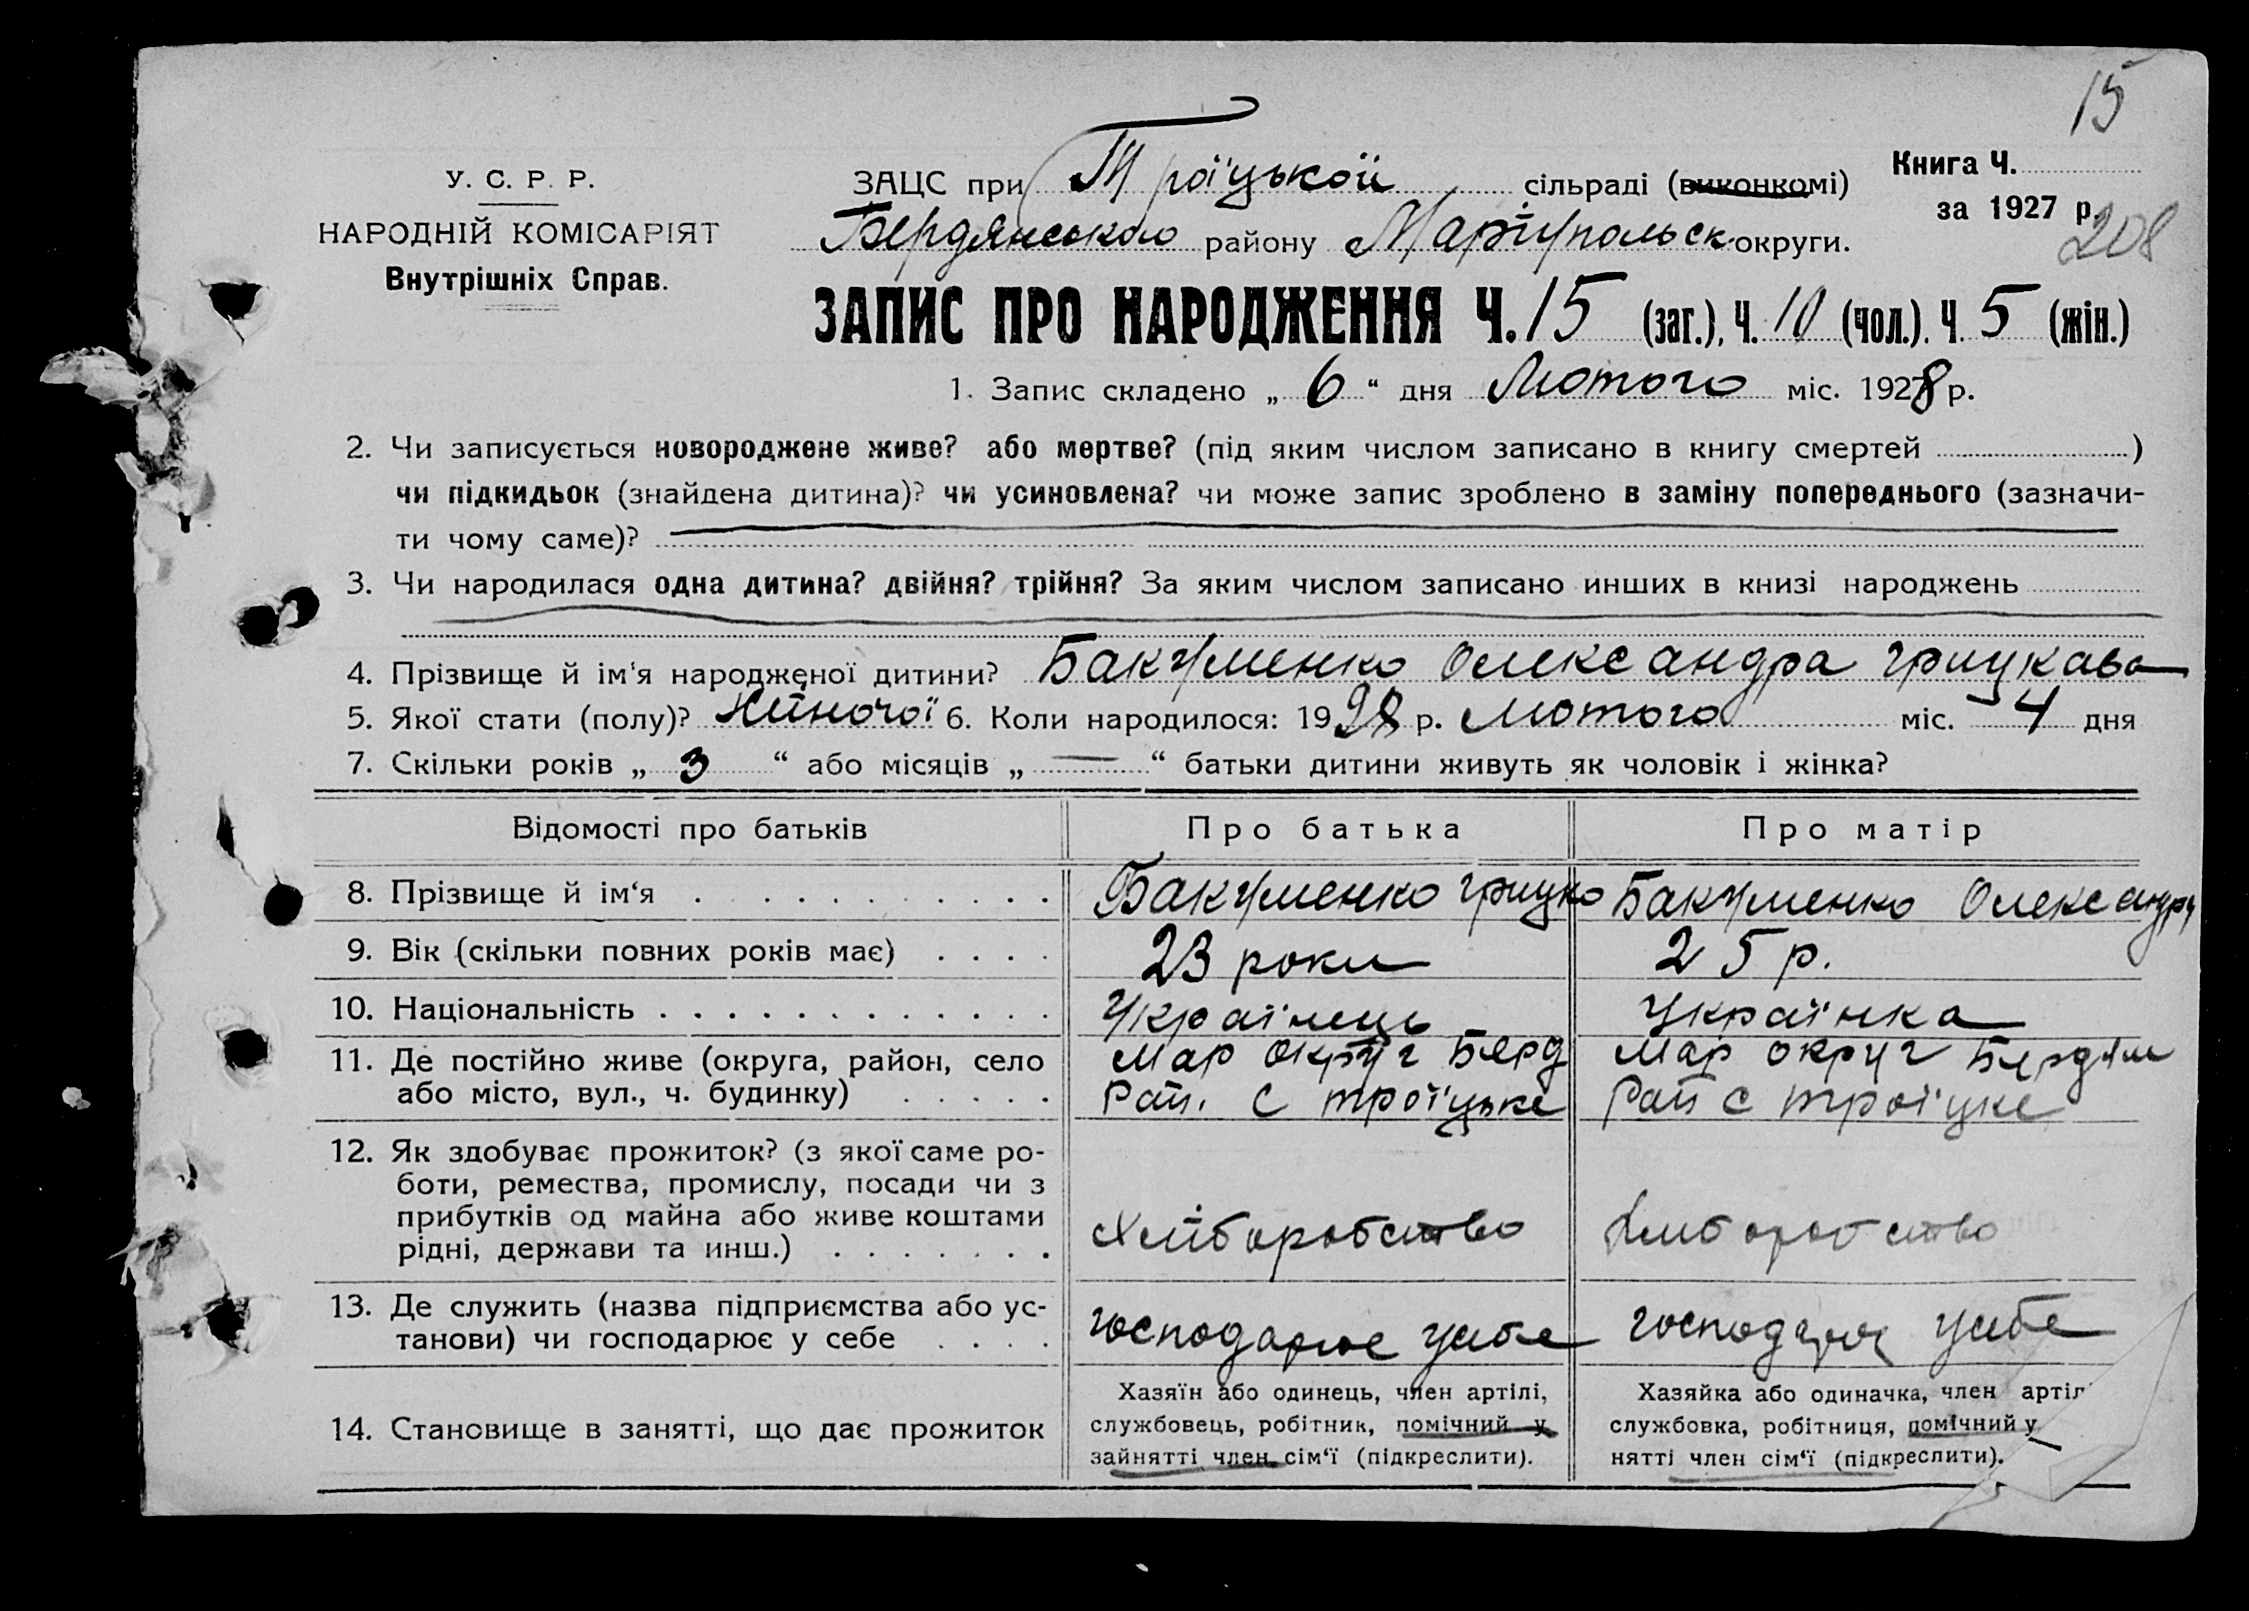 15
У. С. Р. Р.
НАРОДНІЙ КОМІСАРІЯТ
Внутрішніх Справ.
ЗАЦС при Троїцькой сільраді (виконкомі)
Бердянського району Маріупольск. округи.
Книга Ч.
за 1927 р.
208
ЗАПИС ПРО НАРОДЖЕННЯ Ч. 15 (заг.), Ч. 10 (чол.). Ч. 5 (жін.)
1. Запис складено „ 6 “ дня Лютого міс. 1928 р.
2. Чи записується новороджене живе? або мертве? (під яким числом записано в книгу смертей )
чи підкидьок (знайдена дитина)? чи усиновлена? чи може запис зроблено в заміну попереднього (зазначи-
ти чому саме)?
3. Чи народилася одна дитина? двійня? трійня? За яким числом записано инших в книзі народжень
4. Прізвище й ім'я народженої дитини? Бакуменко Олександра грицкава
5. Якої стати (полу)? Жіночої 6. Коли народилося: 1928 р. Лютого міс. 4 дня
7. Скільки років „ 3 “ або місяців „ — “ батьки дитини живуть як чоловік і жінка?
Відомості про батьків Про батька Про матір
8. Прізвище й ім‘я Бакуменко грицко Бакуменко Олександр
9. Вік (скільки повних років має) 23 роки 25 р.
10. Національність Українець Українка
11. Де постійно живе (округа, район, село Мар округ Бярд Мар округ Бярдян
або місто, вул., ч. будинку) Рай. с троїцьке Рай с троїцке
12. Як здобуває прожиток? (з якої саме ро-
боти, ремества, промислу, посади чи з
прибутків од майна або живе коштами
рідні, держави та инш.) Хліборобство Хліборобство
13. Де служить (назва підприємства або ус-
танови) чи господарює у себе господарює усебе господарює усебе
14. Становище в занятті, що дає прожиток
Хазяїн або одинець, член артілі,
службовець, робітник, помічний у
зайнятті член сім‘ї (підкреслити).
Хазяйка або одиначка, член артіл
службовка, робітниця, помічний у
нятті член сім‘ї (підкреслити).